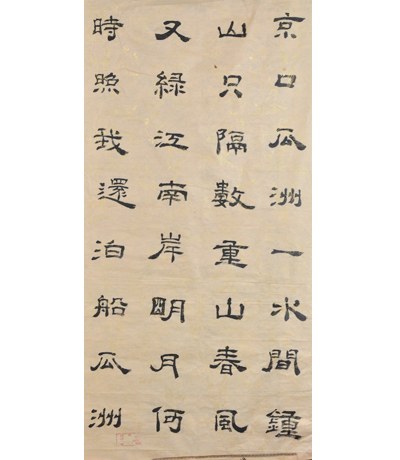 京口瓜洲一水間鍾
山只隔數重山春風
又綠江南岸明月何
時照我還泊船瓜洲